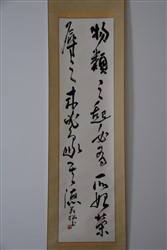 物類之起必有所始榮
辱之来必象其德